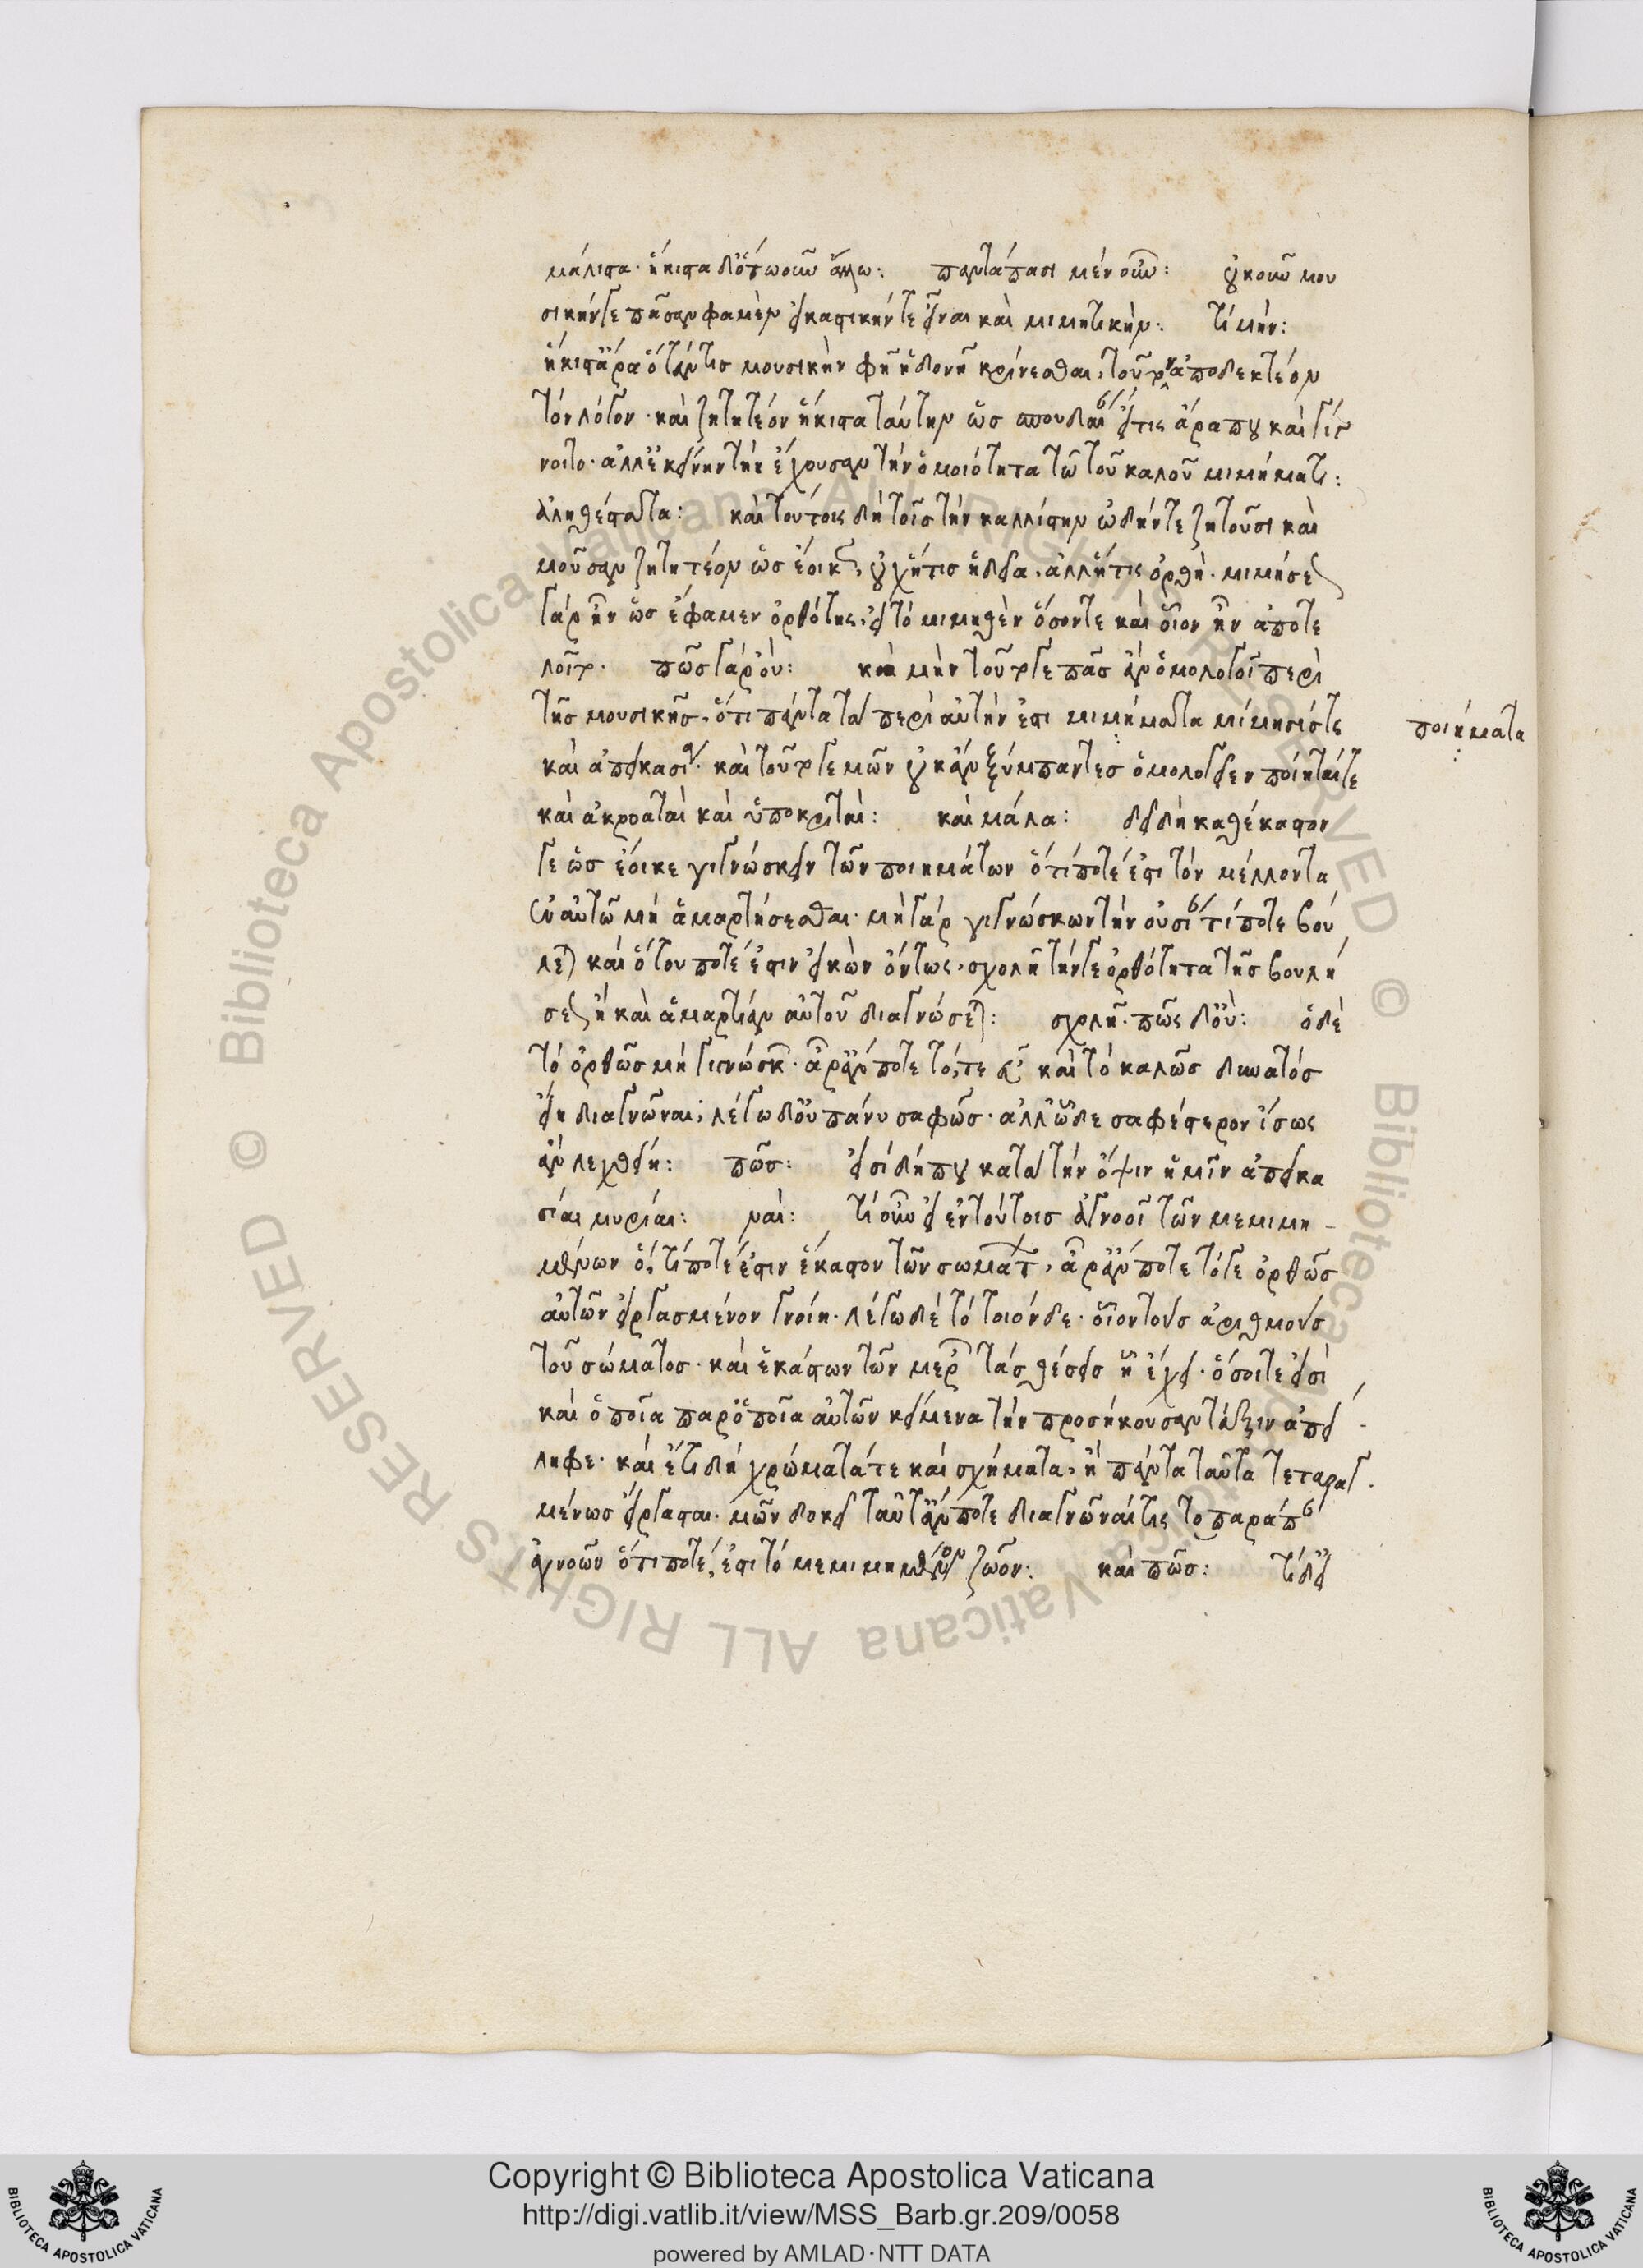 μάλιστα· ἥκιστα δὲ ὁτωοῦν ἄλλω: παντάπασι μὲν οὖν: οὐκοῦν μου
σικήν γε πᾶσαν φαμὲν εἰκαστικήν τε εἶναι καὶ μιμητικήν: τί μήν:
ἥκιστ' ἄρα ὅταν τις μουσικὴν φῆ ἡδονῆ κρίνεσθαι, τοῦτον ἀποδεκτέον
τὸν λόγον· καὶ ζητητέον ἥκιστα ταύτην ὡς σπουδαίαν εἴ τις ἄρα που καὶ γίγ
νοιτο· ἀλλ' ἐκείνην τὴν ἔχουσαν τὴν ὁμοιότητα τῶ τοῦ καλοῦ μιμήματι:
ἀληθέστατα: καὶ τούτοις δὴ τοῖς τὴν καλλίστην ὠδήν τε ζητοῦσι καὶ
μοῦσαν ζητητέον ὡς ἔοικεν, οὐχ ἥτις ἡδεῖα, ἀλλ' ἥτις ὀρθή· μιμήσεως
γὰρ ἦν ὡς ἔφαμεν ὀρθότης, εἰ τὸ μιμηθὲν ὅσον τε καὶ οἷον ἦν ἀποτε
λοῖτο· πῶς γὰρ οὔ: καὶ μὴν τοῦτό γε πᾶς ἂν ὁμολογοῖ περὶ
τῆς μουσικῆς, ὅτι πάντα τὰ περὶ αὐτήν ἐστι μιμήματα μίμησίς τε
ποιήματα
καὶ ἀπεικασία· καὶ τοῦτό γε μῶν οὐκ ἂν ξύμπαντες ὁμολογεῖεν ποιηταί τε
καὶ ἀκροαταὶ καὶ ὑποκριταί: καὶ μάλα: δεῖ δὴ καθ' ἕκαστόν
γε ὡς ἔοικε γιγνώσκειν τῶν ποιημάτων ὅ τί ποτέ ἐστι τὸν μέλλοντα
ἐν αὐτῶ μὴ ἁμαρτήσεσθαι· μὴ γὰρ γιγνώσκων τὴν οὐσίαν τί ποτε βού
λεται καὶ ὅτου ποτέ ἐστιν εἰκὼν ὄντως, σχολῆ τήν γε ὀρθότητα τῆς βουλή
σεως ἢ καὶ ἁμαρτίαν αὐτοῦ διαγνώσεται: σχολῆ· πῶς δ' οὔ: ὁ δὲ
τὸ ὀρθῶς μὴ γιγνώσκων· ἆρ' ἄν ποτε τό, τε εὖ καὶ τὸ κακῶς δυνατὸς
εἴη διαγνῶναι; λέγω δ' οὐ πάνυ σαφῶς· ἀλλ' ὧδε σαφέστερον ἴσως
ἂν λεχθείη: πῶς: εἰσὶ δή που κατὰ τὴν ὄψιν ἡμῖν ἀπεικα
σίαι μυρίαι: ναί: τί οὖν εἰ ἐν τούτοις ἀγνοοῖ τῶν μεμιμη-
μένων ὅ, τί ποτέ ἐστιν ἕκαστον τῶν σωμάτων, ἆρ' ἄν ποτε τό γε ὀρθῶς
αὐτῶν εἰργασμένον γνοίη· λέγω δὲ τὸ τοιόνδε· οἷον τοὺς ἀριθμοὺς
τοῦ σώματος· καὶ ἑκάστων τῶν μερῶν τὰς θέσεις ᾗ ἔχει· ὅσοι τε εἰσὶ
καὶ ὁποῖα παρ' ὁποῖα αὐτῶν κείμενα τὴν προσήκουσαν τάξιν ἀπεί-
ληφε· καὶ ἔτι δὴ χρώματά τε καὶ σχήματα, ἢ πάντα ταῦτα τεταραγ-
μένως εἴργασται· μῶν δοκεῖ ταῦτ' ἄν ποτε διαγνῶναί τις τὸ παράπαν
ἀγνοῶν ὅ τι ποτέ, ἐστι τὸ μεμιμημένον ζῶον: καὶ πῶς: τί δ' εἰ